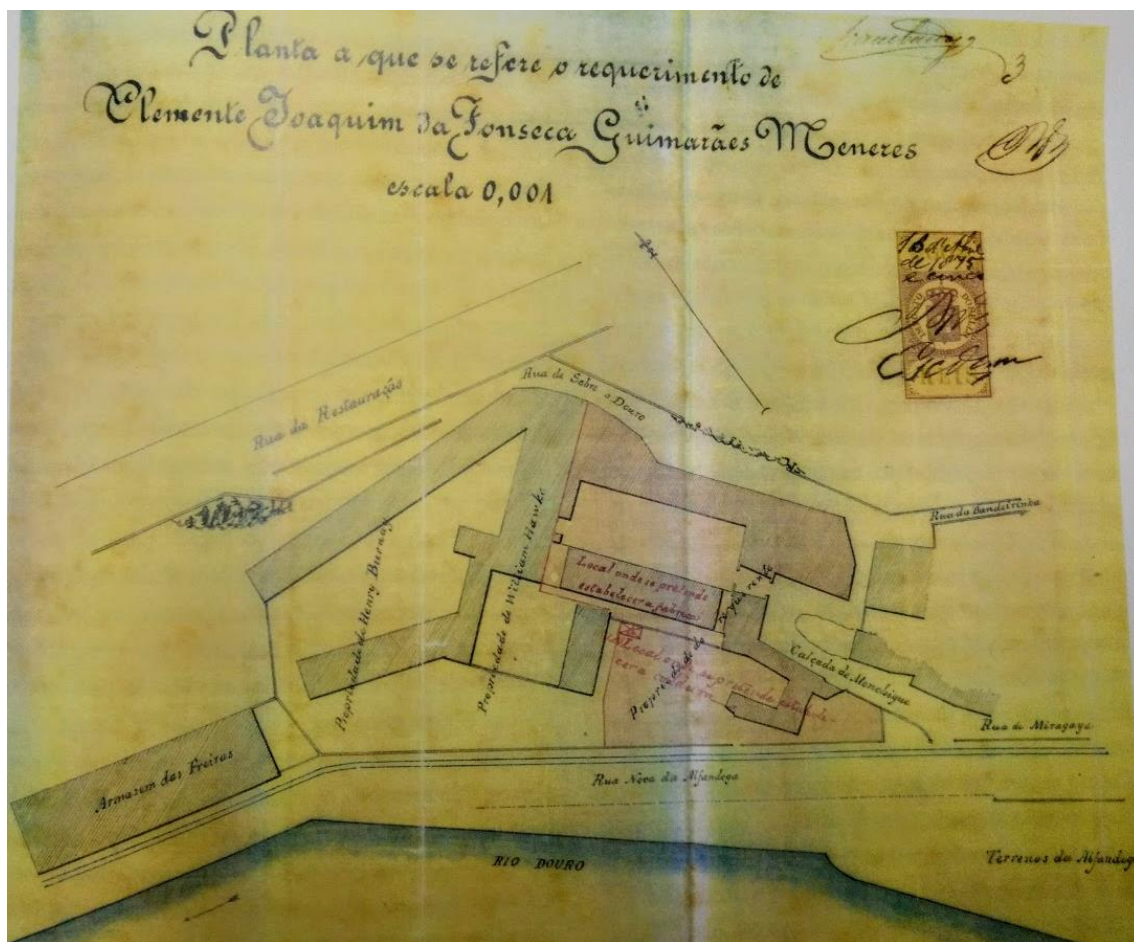 Planta a que se refere o requerimento de
Clemente Joaquim da Fonseca Guimarães Meneres
escala 0,001
3
de 1875
Rua da Restauração
Rua de Sobre o Douro
Rua da Bandeirinha
Propriedade de Henry Burnay
Propriedade de William Hawke
Local onde se pretende
estabelecer a fabrica
Propriedade do requerente
Local onde se pretende estabele-
cer a
Calçada de Monchique
Rua de Miragaya
Armazem das Freiras
Rua Nova da Alfandega
RIO DOURO
Terrenos da Alfandega